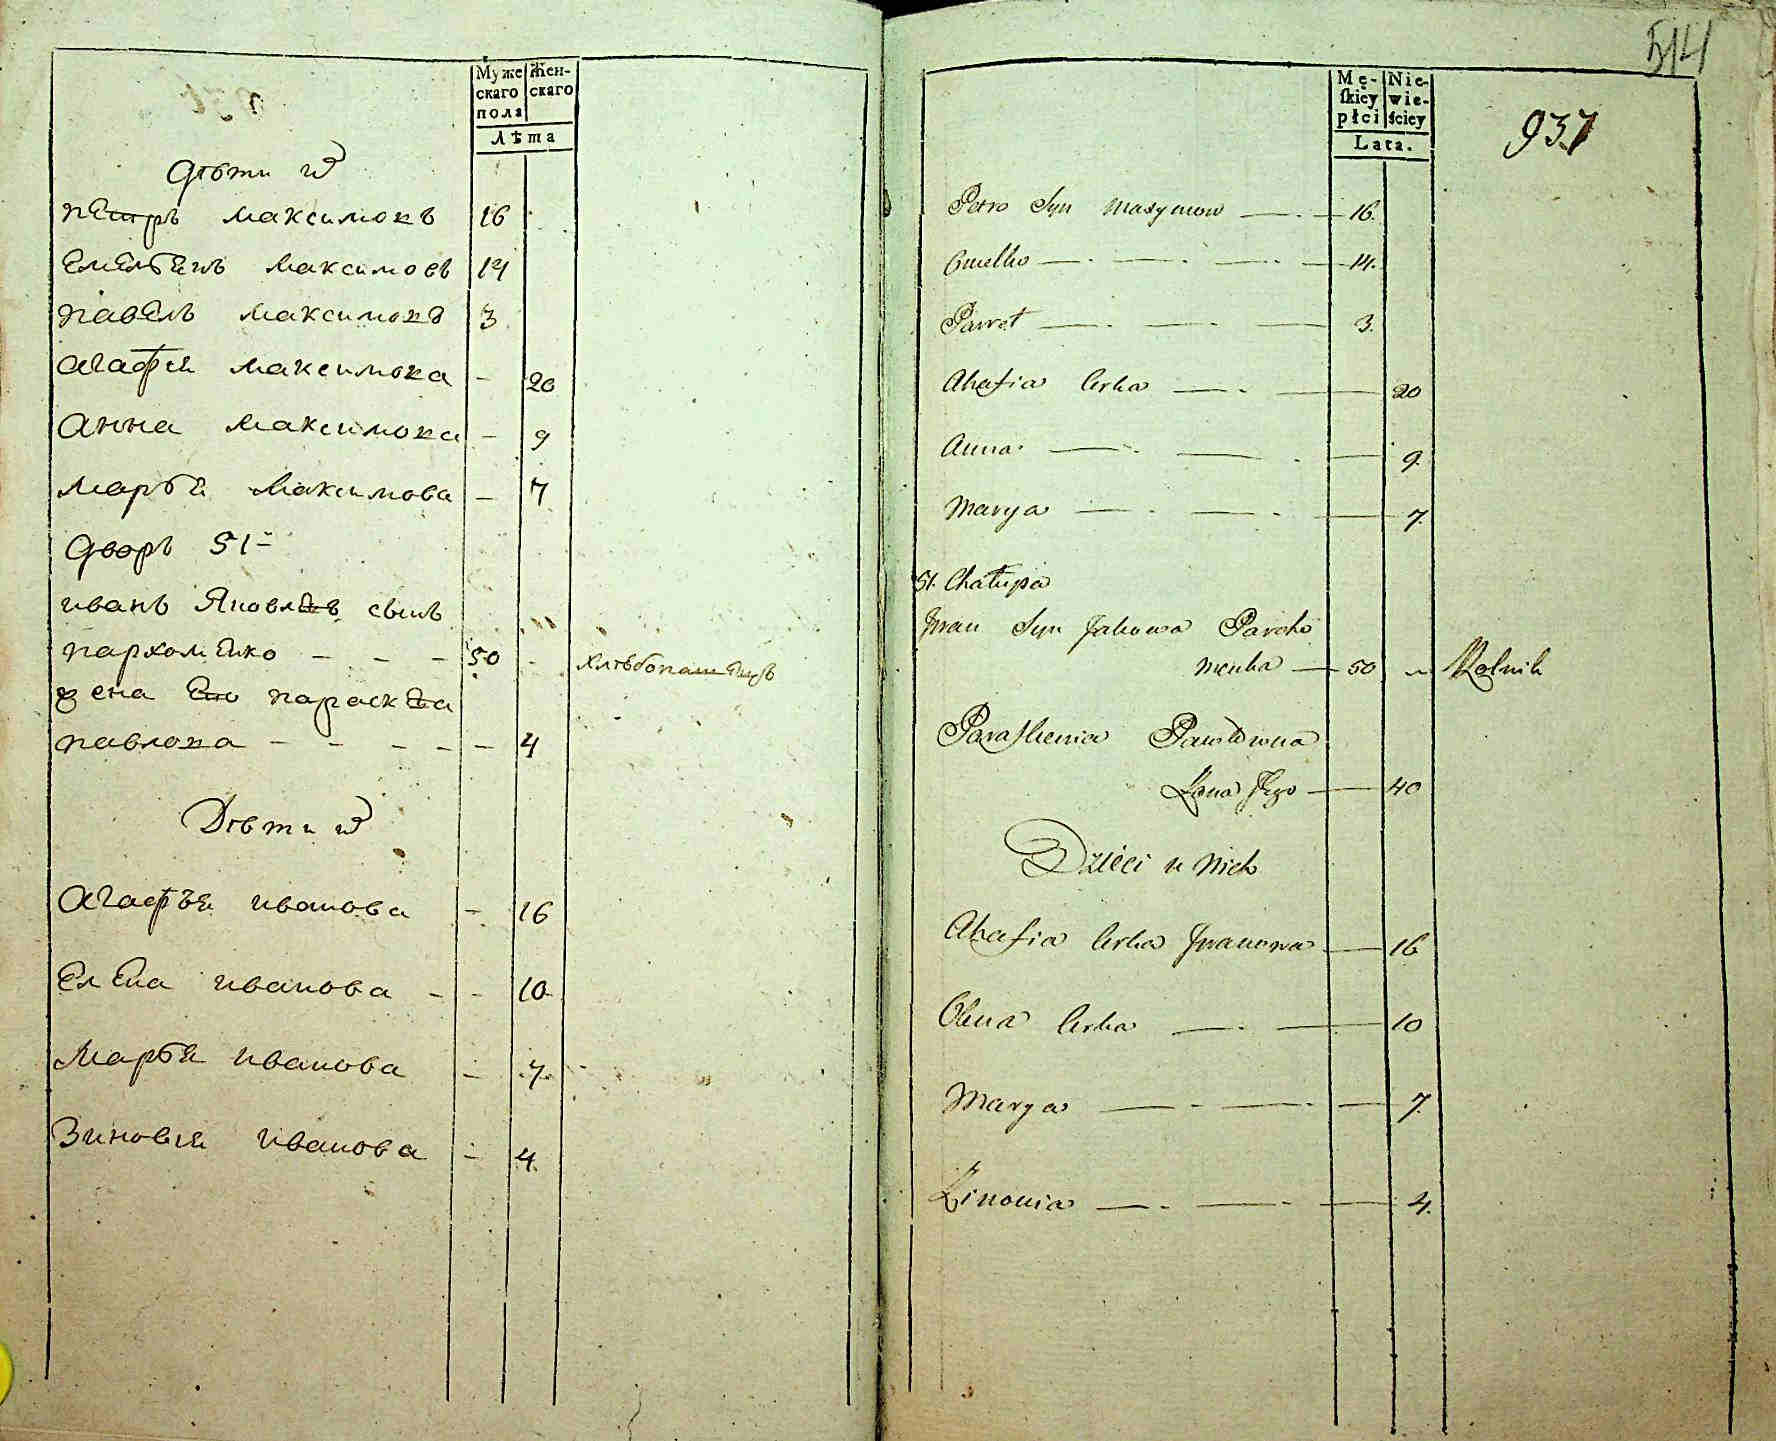 Муже
скаго
пола
Жен-
скаго
Лѣта
Дѣти их
петръ максимовъ 16
Емельянъ максимовъ 14
павелъ максимовъ 3
агафия максимова - 20
анна максимова - 9
марья максимова - 7
дворъ 51-
иванъ Яковлевъ сынъ
пархоменко - - - 50 - хлѣбопашецъ
жена Его параскева
павлова - - - - - 4
Дѣти их
агафья иванова - 16
Елена иванова - - 10
Марья иванова - 7
Зиновия иванова - 4
514
Mę-
ſkiey
płci
Nie-
wie-
ściey
Lata.
937
Petro Syn Maxymow 16.
Omelko 14.
Paweł 3.
Ahafia Corka 20
Anna 9.
Marya 7.
51. Chałupa
Jwan Syn Jakowa Parcho
menka 50 Rolnik
Paraskewia Pawłowna
Żona Jego 40
Dzieci u nich
Ahafia Corka Jwanowa 16
Olena Corka 10
Marya 7.
Zinowia 4.